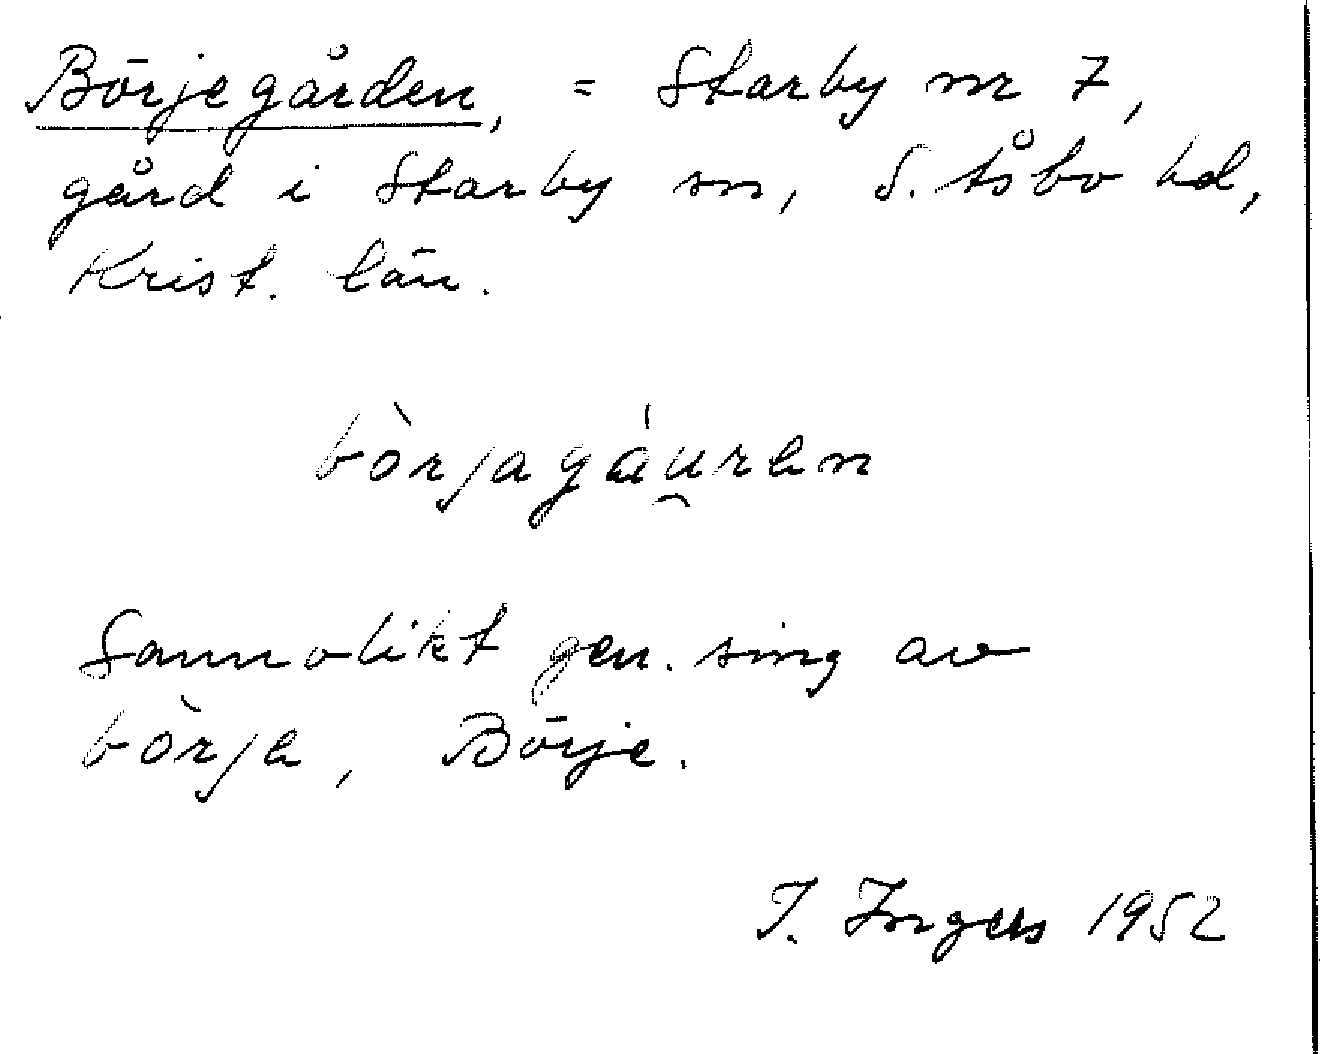 Börjegården, = Starby nr 7,
gård i Starby sn, S. Åsbo hd,
Krist. län.
bòrjagáu̯ren
Sannolikt gen. sing av
bòrje, Börje.
I. Ingers 1952